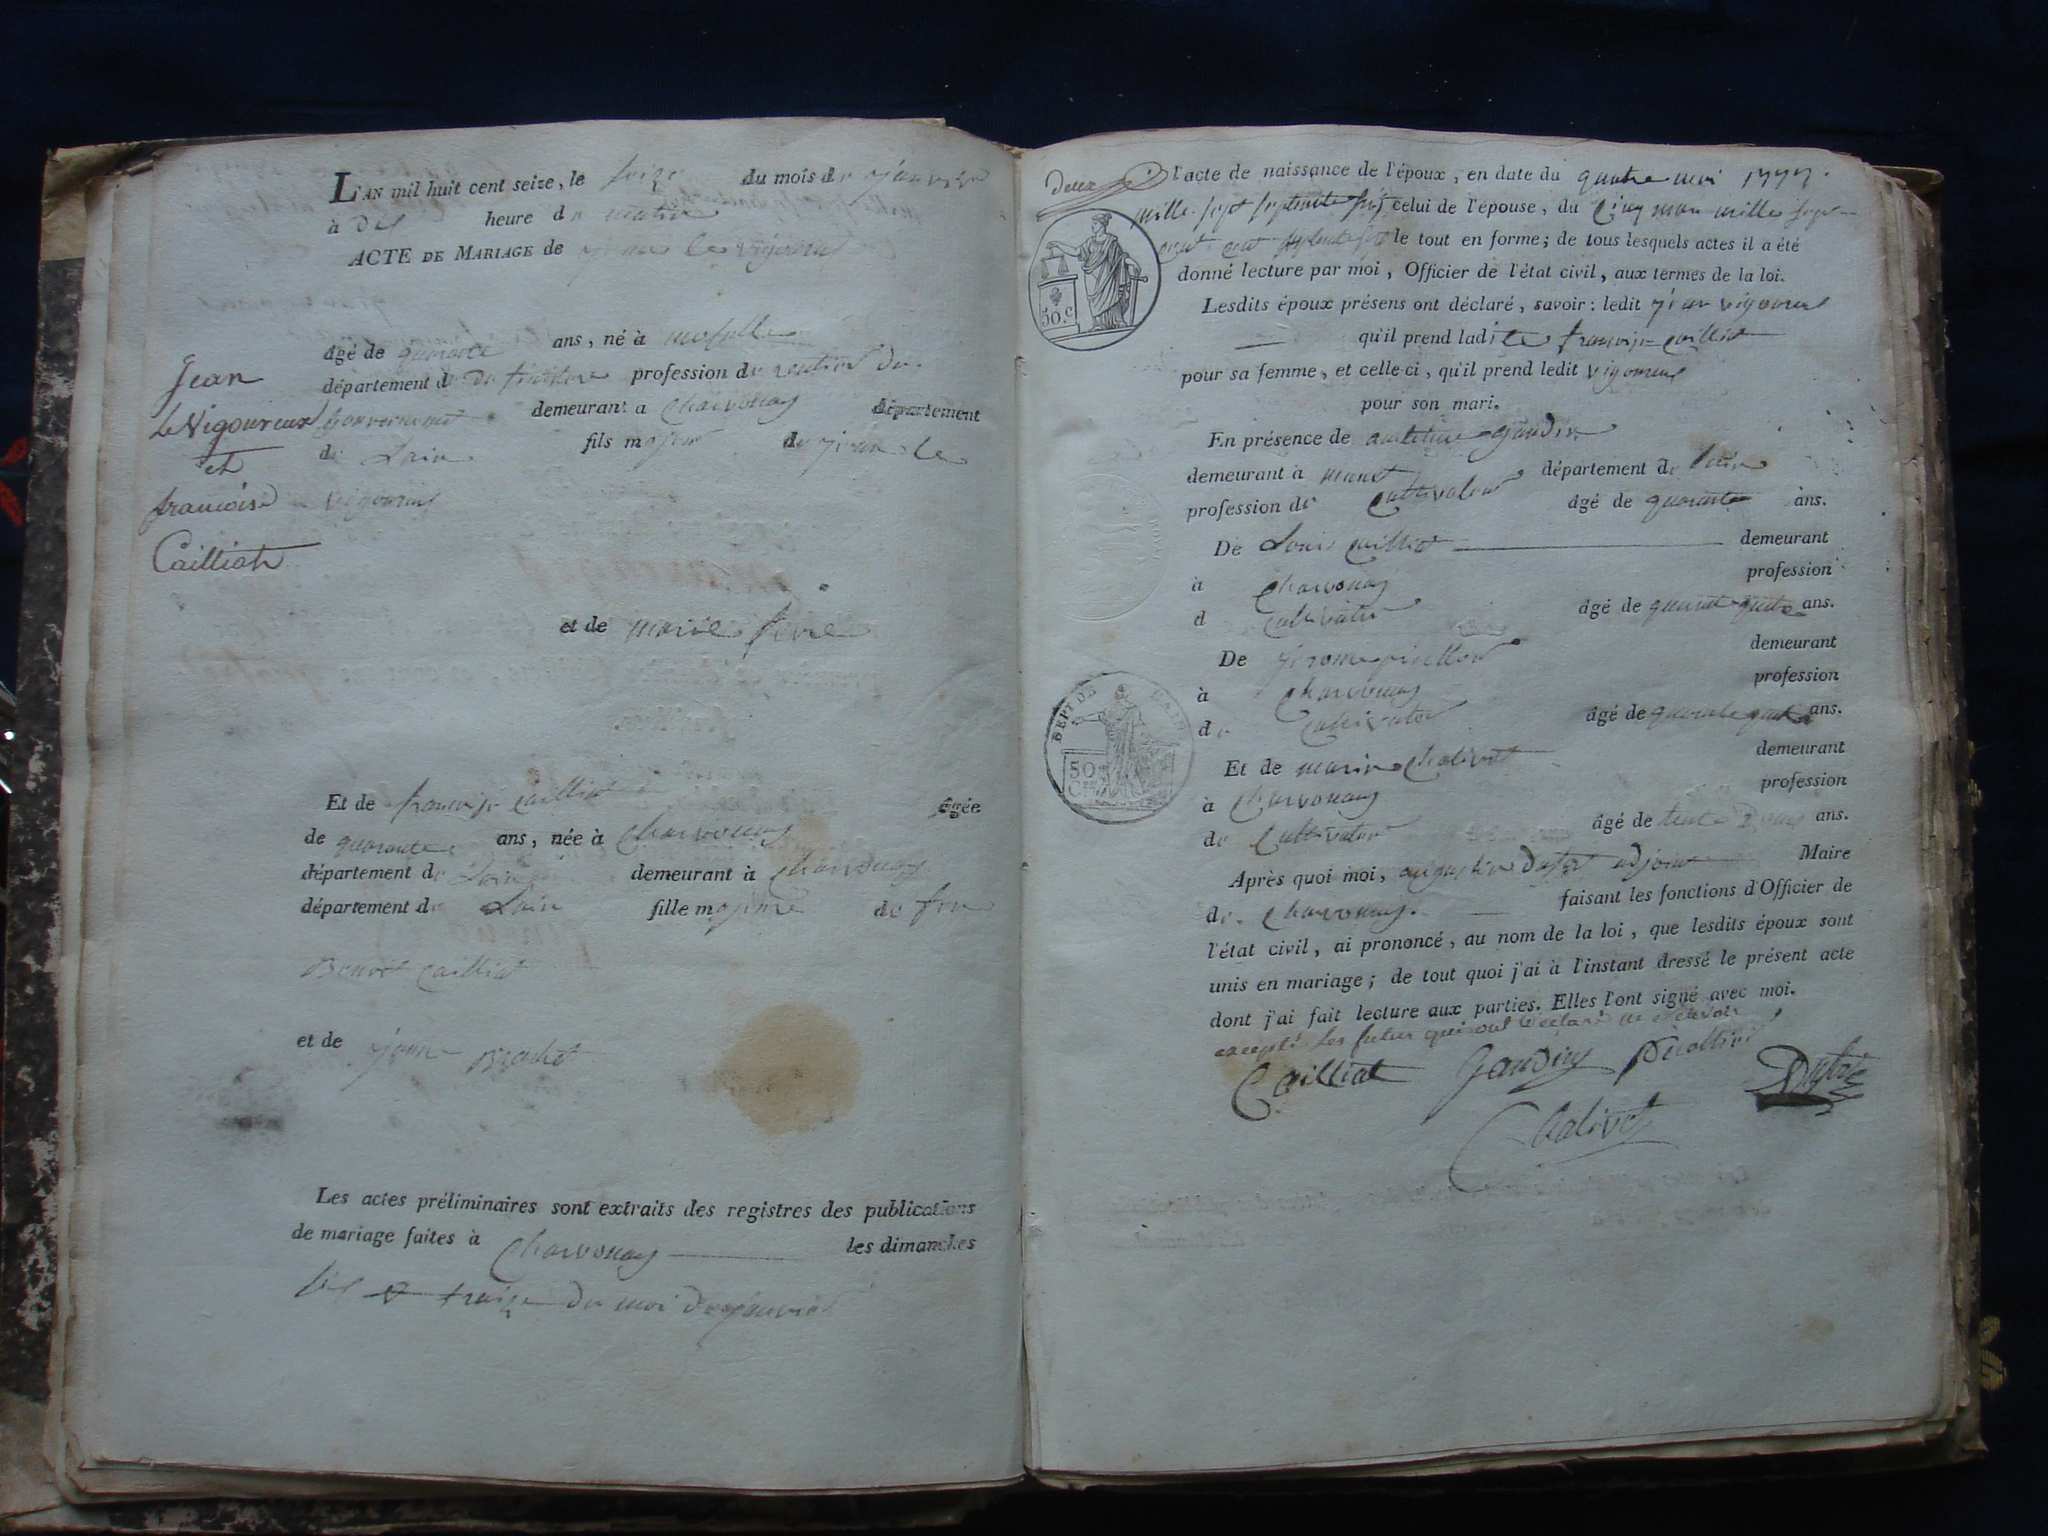 L'AN mil huit cent seize, le seize du mois de janvier
à dix heure du matin
ACTE DE MARIAGE de jean le vigoureux
Jean
Le Vigoureux
et
francoise
Cailliat
âgé de quarante ans, né à
département du finistere profession de rentier du
Gouvernement demeurant a Charvonay département
de Lain fils majeur de jean le
vigoureux
et de marie
Et de francoise Cailliat âgée
de quarante ans, née à Charvonay
département de Lain demeurant à Charvonay
département de Lain fille majeure de feu
Benoit Cailliat
et de jeanne Brochet
Les actes préliminaires sont extraits des registres des publications
de mariage faites à Charvonay les dimanches
du moi de janvier
Deux
l'acte de naissance de l'époux, en date du quatre mai 1777.
mille sept septente celui de l'épouse, du Cinq mars mille sept
cent septente sept le tout en forme; de tous lesquels actes il a été
donné lecture par moi, Officier de l'état civil, aux termes de la loi.
50.c
Lesdits époux présens ont déclaré, savoir: ledit jean vigoureux
qu'il prend ladite francoise Cailliat
pour sa femme, et celle-ci, qu'il prend ledit vigoureux
pour son mari.
En présence de anthelme gaudin
demeurant à département de lain
profession de Cultivateur âgé de quarante ans.
De Louis Cailliat demeurant
à Charvonay profession
d Cultivateur âgé de quarante quatre ans.
De jerome demeurant
à Charvonay profession
de Cultivateur âgé de quarante quatre ans.
DEPT DE L'AIN
50
Et de marin Chalivet demeurant
à Charvonay profession
de Cultivateur âgé de trente Deux ans.
Après quoi moi, augustin adjoint Maire
de Charvonay faisant les fonctions d'Officier de
l'état civil, ai prononcé, au nom de la loi, que lesdits époux sont
unis en mariage; de tout quoi j'ai à l'instant dressé le présent acte
dont j'ai fait lecture aux parties. Elles l'ont signé avec moi.
excepté les futur qui ont déclaré ne savoir
Cailliat Gaudin
Chalivet